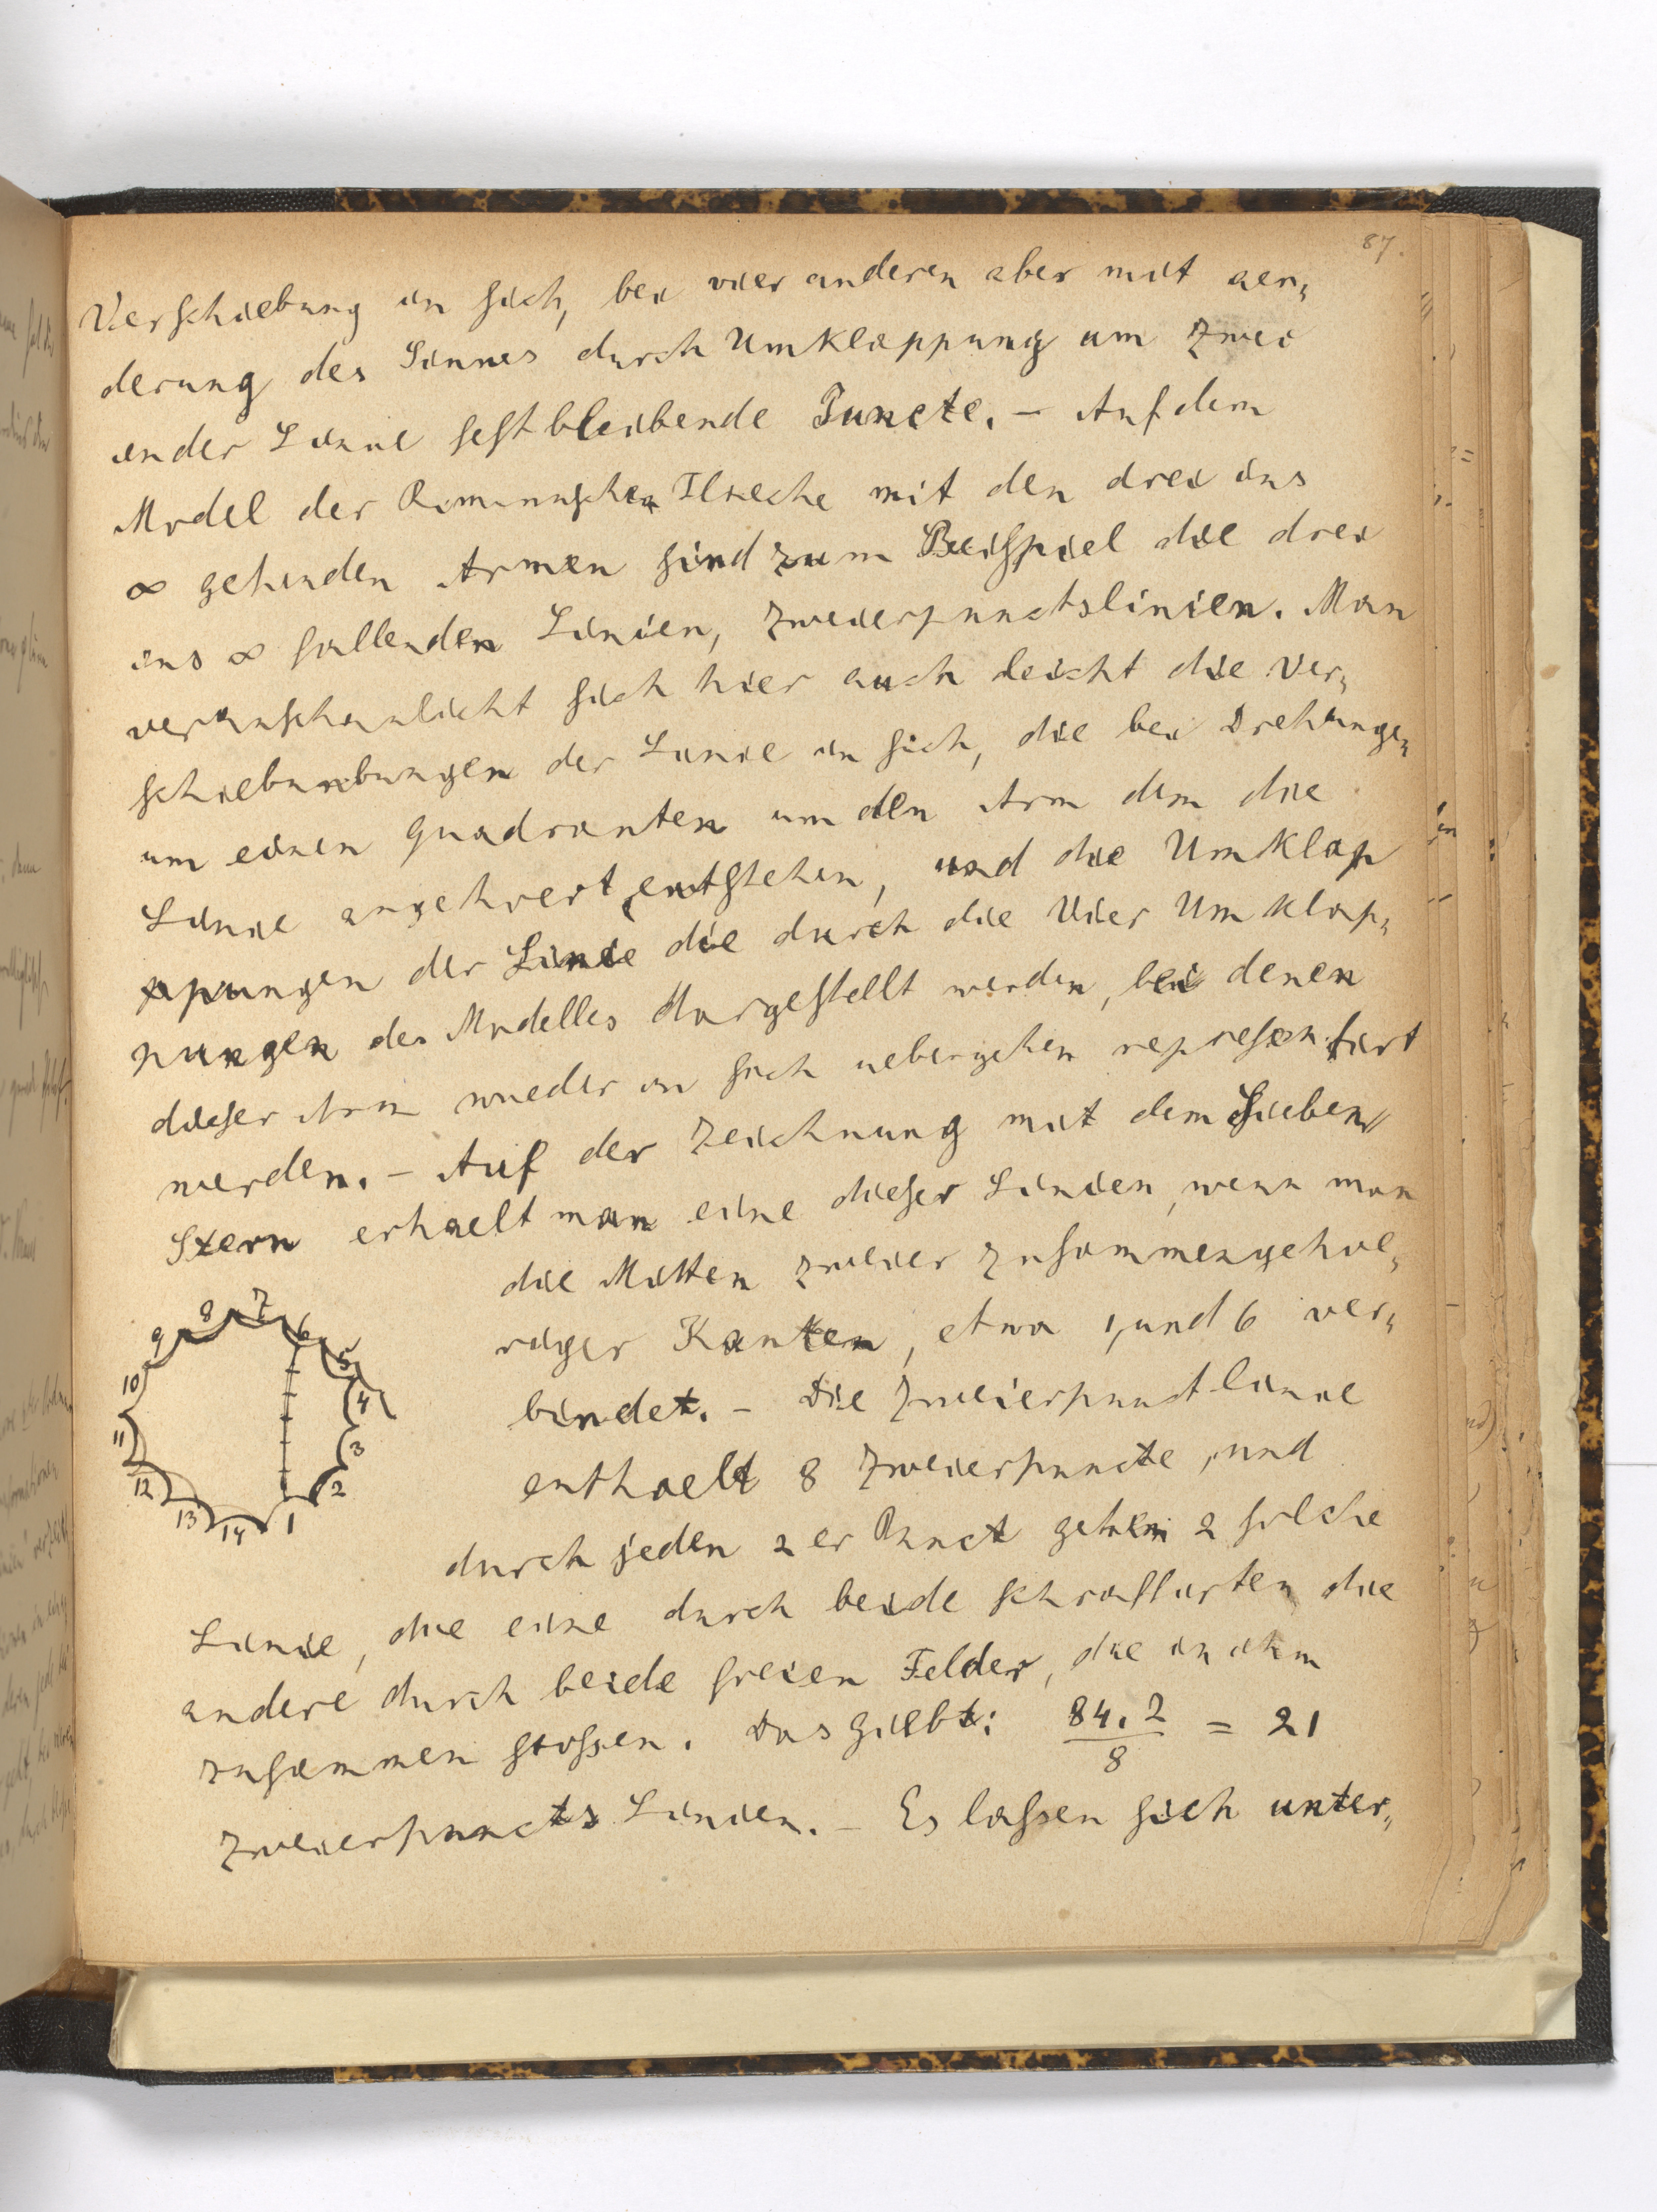 87.
Verschiebung in sich, bei vier anderen aber mit aen„
derung des Sinnes durch Umklappung um zwei
in der Linie festbleibende Puncte. – Auf dem
Model der Rimannschen Flaeche mit den drei ins
∞ gehenden Armen sind zum Beispiel die drei
ins ∞ fallenden Linien, Zweierpunctslinien. Man
veranschaulicht sich hier auch leicht die Ver„
schiebunbungen der Linie in sich, die bei Drehungen
um einen Quadranten um den Arm dem die
Linie angehoert, entstehen, und die Umklap
ppungen der Linie die durch die Vier Umklap„
pungen des Modelles dargestellt werden, bei denen
dieser Arm wieder in sich uebergehen representiert
werden. – Auf der Zeichnung mit dem Sieben„
Stern erhaelt man eine dieser Linien, wenn man
die Mitten zweier zusammengehoe„
riger Kanten, etwa 1, und 6 ver„
bindet. – Die Zweierpunctlinie
enthaelt 8 Zweierpuncte, und
durch jeden 2er Punct gehen 2 solche
Linie, die eine durch beide schraffirten die
andere durch beide freien Felder, die in ihm
zusammen stossen. Das giebt: 84.2/8 = 21
Zweierpuncts Linien. – Es lassen sich unter„
1 2 3 4 5 6 7 8 9 10 11 12 13 14